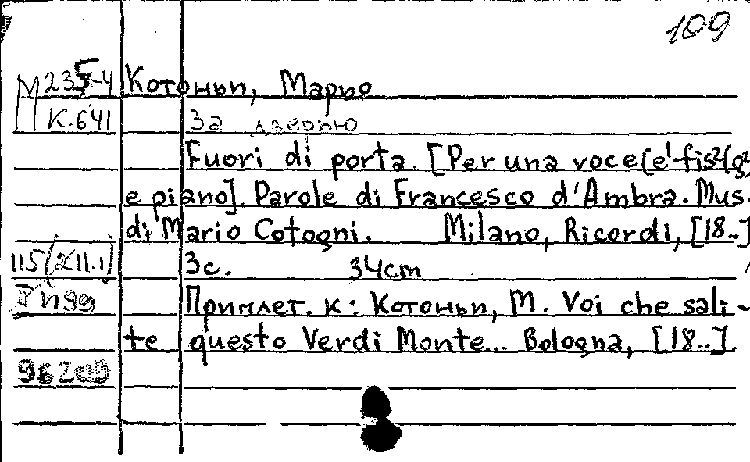 109
М 235-4 Котоньи, Марио
К.641 За дверью
Fuori di porta. [Per una voce (e'-fis²/g²
e piano]. Parole di Francesco d'Ambra. Mus.
di Mario Cotogni. Milano, Ricordi, [18..]
115(XII.1) 3с. 34cm
Приплет. к: Котоньи, М. Voi che sali-
te questo Verdi Monte... Bologna, [18..]